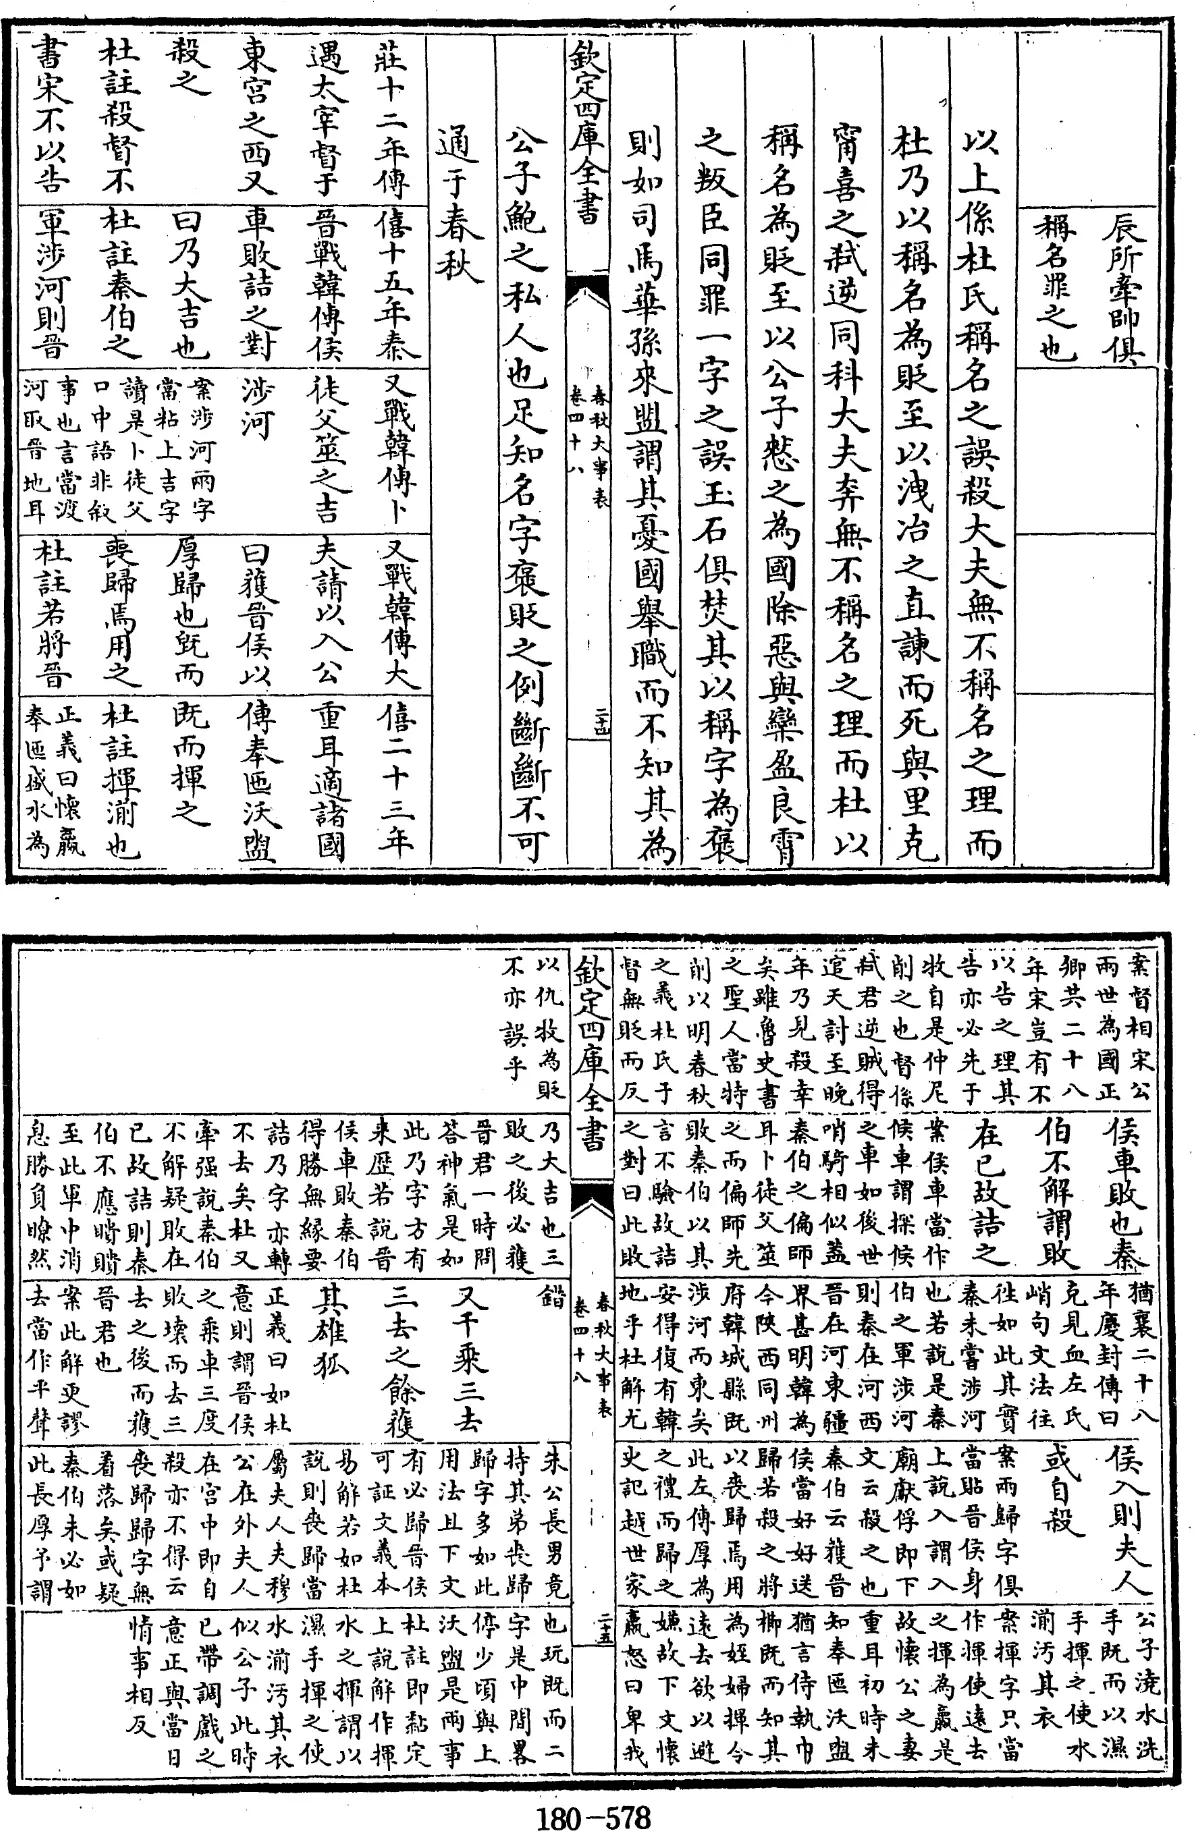 辰所牽帥俱
稱名罪之也
以上係杜氏稱名之誤殺大夫無不稱名之理而
杜乃以稱名為貶至以洩冶之直諫而死與里克
甯喜之弑逆同科大夫奔無不稱名之理而杜以
稱名為貶至以公子憖之為國除惡與欒盈良霄
之叛臣同罪一字之誤玉石俱焚其以稱字為褒
則如司馬華孫來盟謂其憂國舉職而不知其為
欽定四庫全書
春秋大事表
卷四十八
二十四
公子鮑之私人也足知名字褒貶之例斷斷不可
通于春秋
莊十二年傳
遇太宰督于
東宮之西又
殺之
杜註殺督不
書宋不以告
僖十五年秦
晉戰韓傳侯
車敗詰之對
曰乃大吉也
杜註秦伯之
軍涉河則晉
又戰韓傳卜
徒父筮之吉
涉河
案涉河兩字
當粘上吉字
讀是卜徒父
口中語非叙
事也言當渡
河取晉地耳
又戰韓傳大
夫請以入公
曰獲晉侯以
厚歸也旣而
喪歸焉用之
杜註若將晉
僖二十三年
重耳適諸國
傳奉匜沃盥
既而揮之
杜註揮湔也
正義曰懷嬴
奉匜盛水為
案督相宋公
兩世為國正
卿共二十八
年宋豈有不
以告之理其
告亦必先于
牧自是仲尼
削之也督係
弑君逆賊得
逭天討至晚
年乃見殺幸
矣雖魯史書
之聖人當特
削以明春秋
之義杜氏于
督無貶而反
侯車敗也秦
伯不解謂敗
在已故詰之
案侯車當作
候車謂探候
之車如後世
哨騎相似蓋
秦伯之偏師
耳卜徒父筮
之而偏師先
敗秦伯以其
言不驗故詰
之對曰此敗
猶襄二十八
年慶封傳曰
克見血左氏
峭句文法往
往如此其實
秦未嘗涉河
也若說是秦
伯之軍涉河
則秦在河西
晉在河東疆
界甚明韓為
今陜西同州
府韓城縣既
涉河而東矣
安得復有韓
地乎杜解尤
侯入則夫人
或自殺
案兩歸字俱
當貼晉侯身
上說入謂入
廟獻俘即下
文云殺之也
秦伯云獲晉
侯當好好送
歸若殺之將
以喪歸焉用
此左傳厚為
之禮而歸之
史記越世家
公子澆水洗
手既而以濕
手揮之使水
湔汚其衣
案揮字只當
作揮使遠去
之揮為嬴是
故懷公之妻
重耳初時未
知奉匜沃盥
猶言侍執巾
櫛既而知其
為姪婦揮令
遠去欲以避
嫌故下文懷
嬴怒曰卑我
欽定四庫全書
春秋大事表
卷四十八
二十五
以仇牧為貶
不亦誤乎
乃大吉也三
敗之後必獲
晉君一時問
答神氣是如
此乃字方有
來歷若說晉
侯車敗秦伯
得勝無緣要
詰乃字亦轉
不去矣杜又
牽强說秦伯
不解疑敗在
已故詰則秦
伯不應瞶瞶
至此軍中消
息勝負瞭然
錯
又千乘三去
三去之餘獲
其雄狐
正義曰如杜
意則謂晉侯
之乘車三度
敗壞而去三
去之後而獲
晉君也
案此解更謬
去當作平聲
朱公長男竟
持其弟喪歸
歸字多如此
用法且下文
有必歸晉侯
可証文義本
易解若如杜
說則喪歸當
屬夫人夫穆
公在外夫人
在宮中即自
殺亦不得云
喪歸歸字無
着落矣或疑
秦伯未必如
此長厚予謂
也玩既而二
字是中間畧
停少頃與上
沃盥是兩事
杜註即黏定
上說解作揮
水之揮謂以
濕手揮之使
水湔汚其衣
似公子此時
已帶調戲之
意正與當日
情事相反
180-578